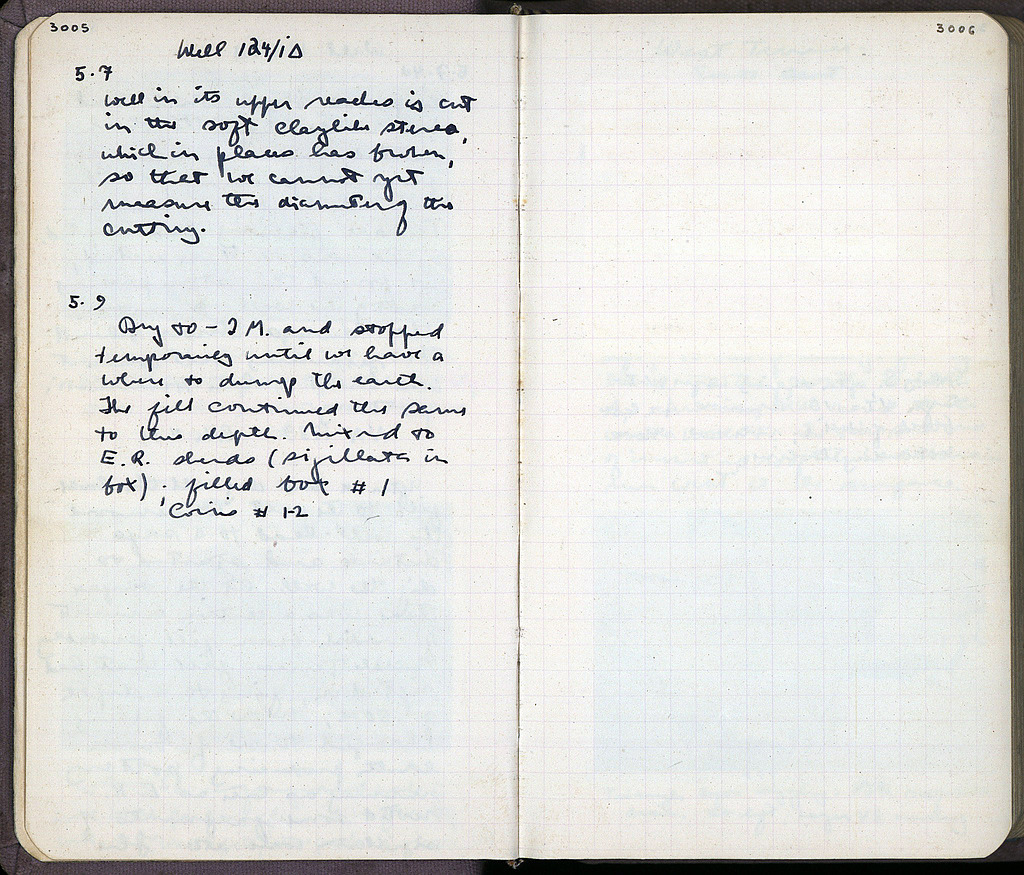 3005
3006
Well 124/ΙΔ
5.7
well in its upper reaches is cut
in the soft claylike stereo,
which in places has broken,
so that we cannot yet
measure the diameter of the
cutting.
5.9
Dug to - 2 M. and stopped
temporarily until we have a
where to dump the earth.
The fill continued the same
to this depth. Mixed to
E.R. sherds (sigillata in
box); filled box # 1
Coins # 1-2